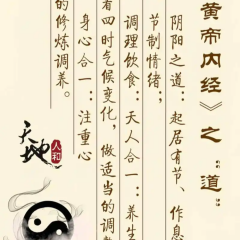 黄帝内经》之“道”
阴阳之道：起居有节、作息
节制情绪；
调理饮食：天人合一：养生
着四时气候变化，做适当的调
身心合一：注重心
的修炼调养。
天地
人和